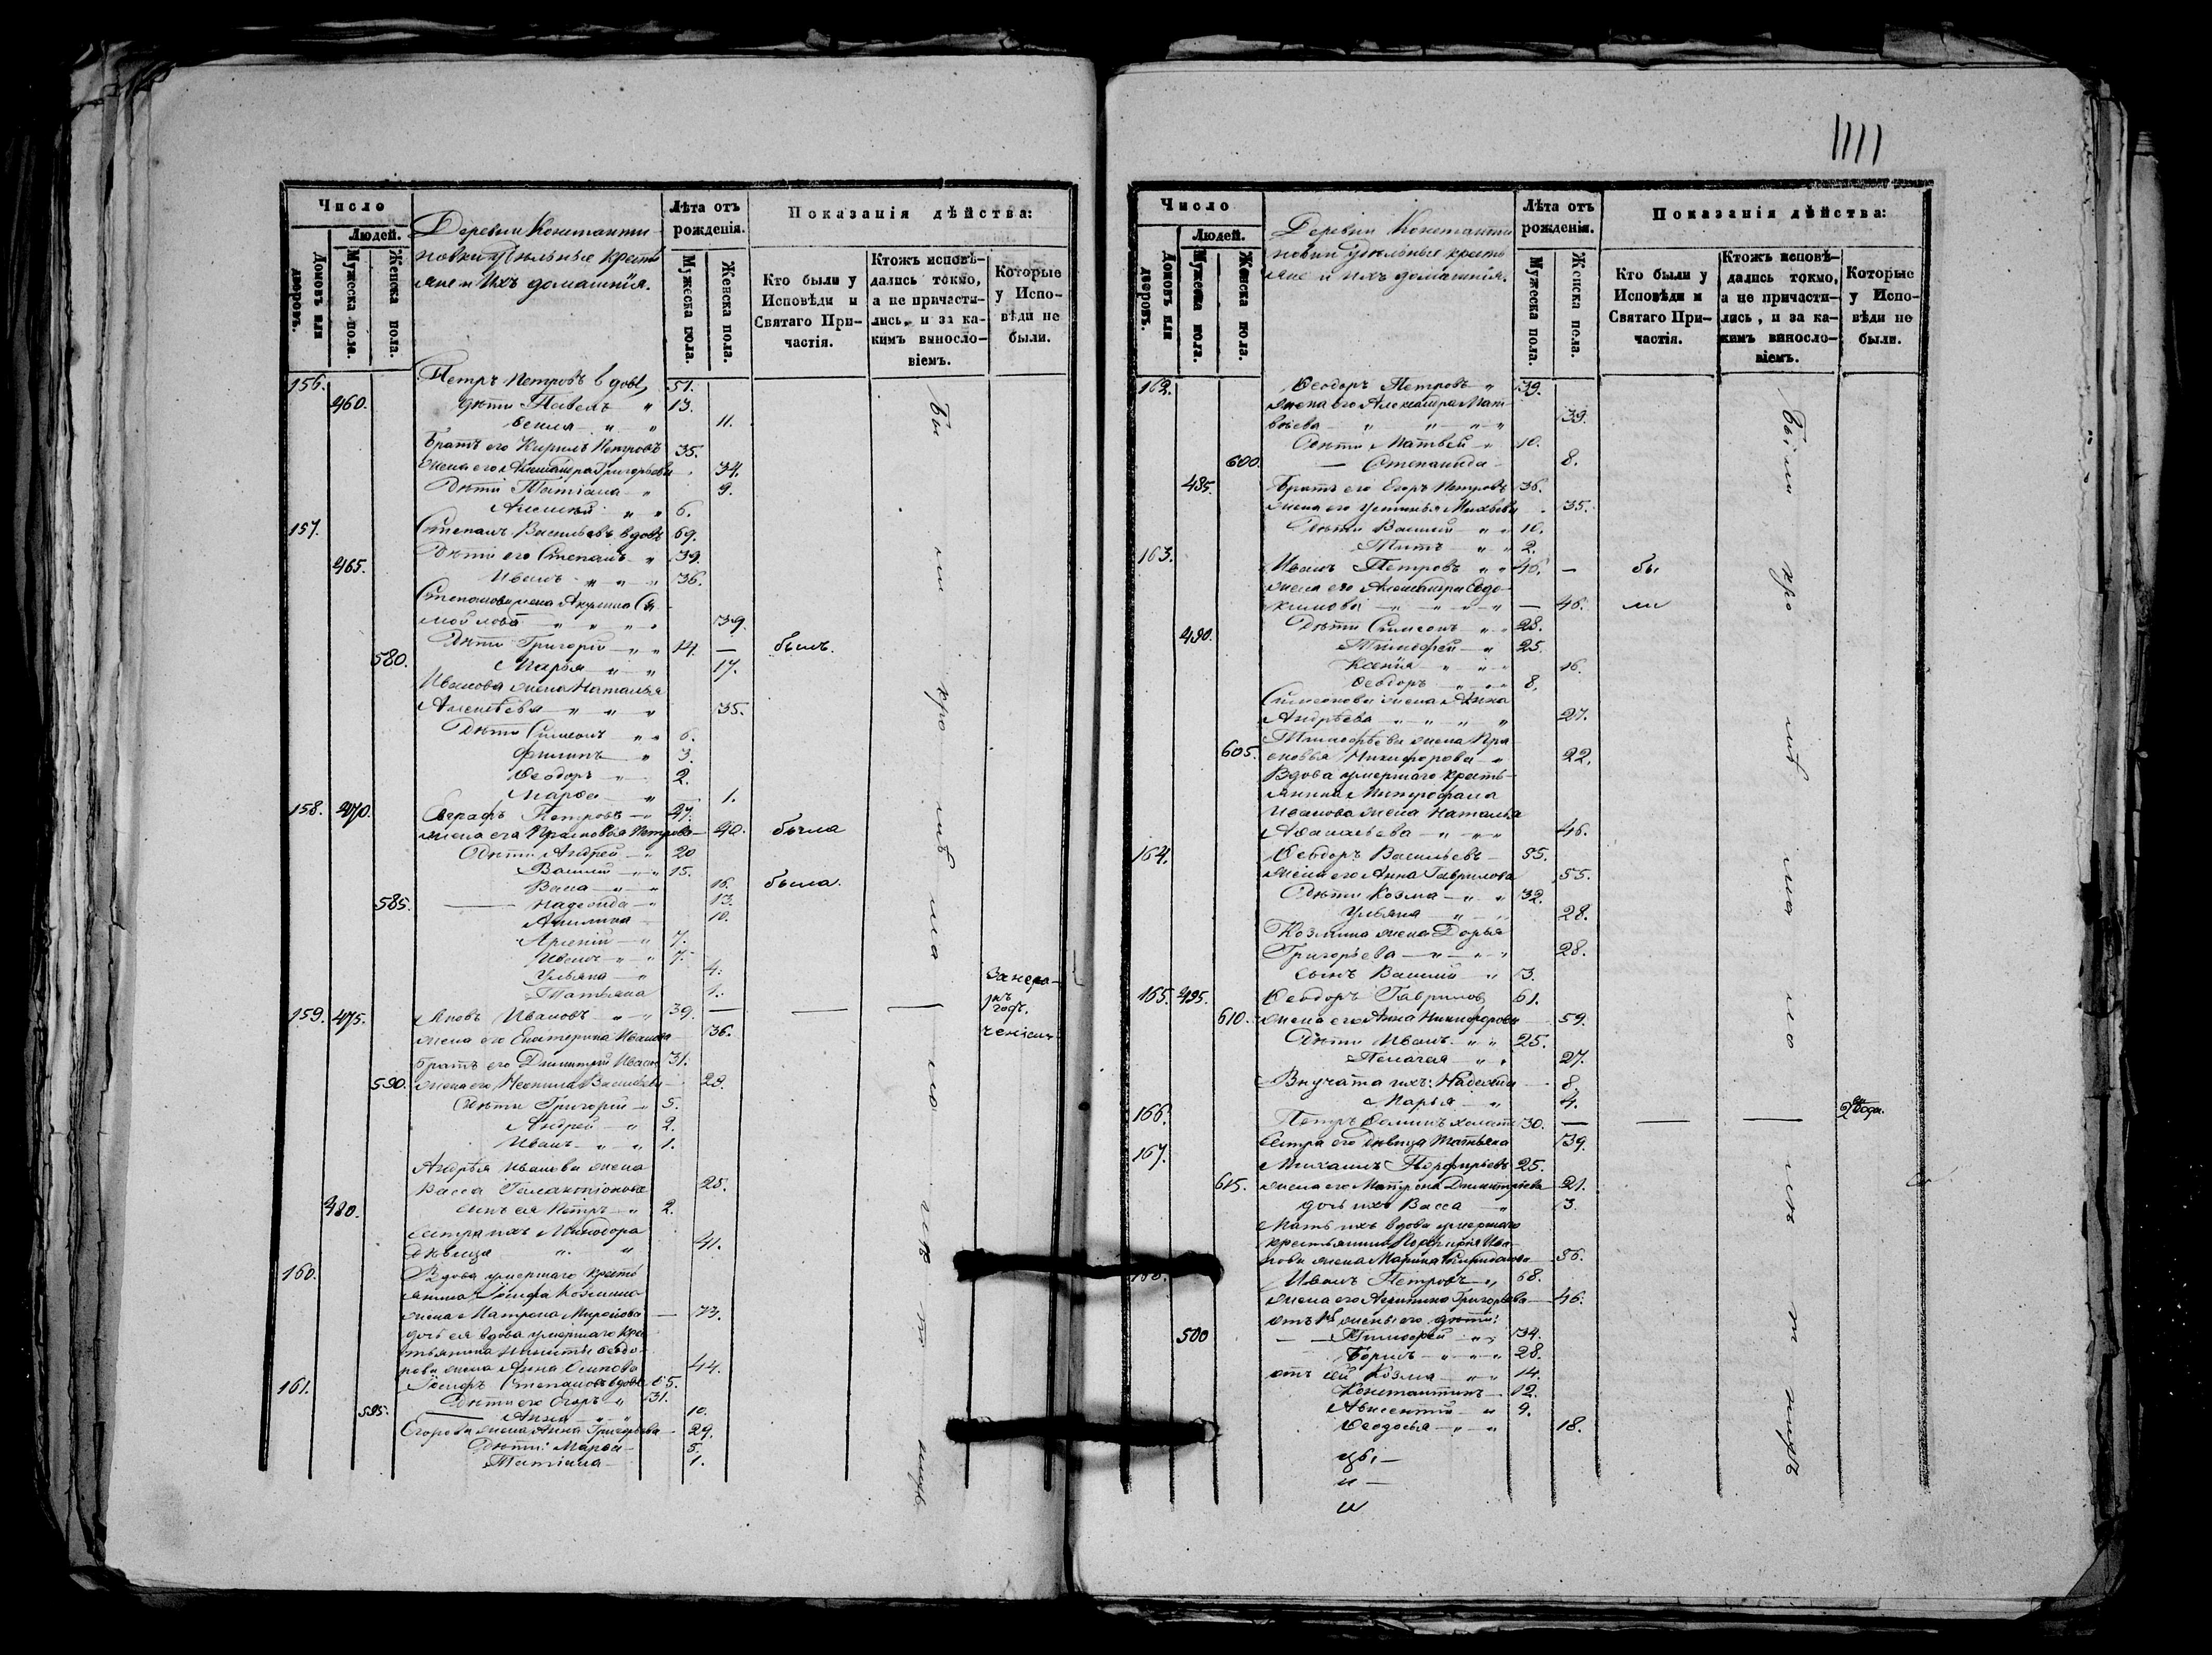 Число
Людей.
Домовъ или дворовъ.
Мужеска пола.
Женска пола.
Деревни Константи-
новки удѣльные кресть
яне и ихъ домашнія.
Лѣта отъ рожденія.
Мужеска пола.
Женска пола.
Показанія дѣйства:
Кто были у Исповѣди и Святаго Причастія.
Ктожъ исповѣ-
дались токмо,
а не причасти-
лись, и за ка-
кимъ виносло-
віемъ.
Которые
у Испо-
вѣди не
были.
156. Петръ Петровъ вдовъ 51.
460. дѣти Павелъ " 13.
" " 11.
Братъ его Кирилъ Петровъ 35.
жена его Александра Григорьева 34.
Дѣти Татіана " 9.
Алексѣй " " 6.
157. Степанъ Васильевъ вдовъ 69.
Дѣти его Степанъ " 39.
465. Иванъ " " " 36.
Степанова жена Акулина Са
мойлова " " " " 39.
Дѣти Григорій " " 14. — былъ.
580. Марья " " 17.
Иванова жена Наталья
Алексѣева " " " 35.
Дѣти Симеонъ " " 6.
Филипъ " 3.
Ѳеодоръ " 2.
Марѳа " 1.
158. 470. Петровъ " 47.
жена его Прасковья Петрова 40. была
Дѣти Андрей " 20
Василій " " 15.
Васса " " 16. была.
585. Надежда " 13.
Акилина 10.
Арсеній " 7.
Иванъ " " 7.
Ульяна " 4.
Татьяна 1.
159. 475. Яковъ Ивановъ " " 39. — — —
жена его Екатерина Иванова 36.
Братъ его Димитрій Иванъ 31.
590. жена его Неонила Васильева 29.
Дѣти Григорій " 5.
Андрей " 2.
Иванъ " " 1.
Андрея Иванова жена
Васса Галактіонова 25.
480. сынъ ея Петръ " 2.
сестра ихъ Минодора
дѣвица " " 41.
160. Вдова умершаго кресть
янина Іосифа Козмина
жена Матрона Миронова 73.
дочь ея вдова умершаго кре
стьянина Никиты Ѳеодо-
рова жена Анна Осипова 44.
161. Іосифъ Степановъ вдовъ 65.
Дѣти его Егоръ " 31.
595. Анна " " 10.
Егорова жена Анна Григорьева 29.
Дѣти: Марѳа 5.
Татіана 1.
Были кромѣ
Число
Людей.
Домовъ или дворовъ.
Мужеска пола.
Женска пола.
Деревни Константи
новки удѣльные кресть
яне и ихъ домашнія.
Лѣта отъ рожденія.
Мужеска пола.
Женска пола.
Показанія дѣйства:
Кто были у Исповѣди и Святаго Причастія.
Ктожъ исповѣ-
дались токмо,
а не причасти-
лись, и за ка-
кимъ виносло-
віемъ.
Которые
у Испо-
вѣди не
были.
162. Ѳеодоръ Петровъ " 39.
жена его Александра Мат-
вѣева " " " " 39.
Дѣти Матвѣй " 10.
600. — Степанида 8.
485. Братъ его Егоръ Петровъ 36.
жена его Устинья Михѣева 35.
Дѣти Василій " " 10.
Титъ " " 2.
163. Иванъ Петровъ " " 46. — бы
жена его Александра Евдо-
кимова " " " — 46. ли
Дѣти Симеонъ " " 28.
490. Тимофей " 25.
Ксенія " " " 16.
Ѳеодоръ " " " 8.
Симеонова жена Анна
Андрѣева " " " " 27.
Тимофѣева жена Пра
605. сковья Никифорова " 22.
Вдова умершаго кресть-
янина Митрофана
Иванова жена Наталья
Аѳанасьева " " " 46.
164. Ѳеодоръ Васильевъ 55.
жена его Анна Гаврилова 55.
Дѣти Козма " " 32.
Ульяна " " 28.
Козмина жена Дарья
Григорьева " " " 28.
сынъ Василій " 3.
165. 495. Ѳеодоръ Гавриловъ 61.
610. жена его Анна Никифорова 59.
Дѣти Иванъ " " 25.
Пелагея " " 27.
Внучата ихъ: Надежда 8.
Марья " 4.
166. Петръ Ѳоминъ 30. — — — 2 года.
сестра его дѣвица Татьяна 39.
167. Михаилъ Порфирьевъ 25.
615. жена его Матрона Димитріева 21.
дочь ихъ Васса " 3.
Мать ихъ вдова умершаго
крестьянина Порфирія Ива-
нова жена Марина Спиридонова 56.
168. Иванъ Петровъ " 68.
жена его Акилина Григорьева 46.
отъ 1й жены его дѣти:
500 Тимофей " " 34.
Борисъ " " " 28.
отъ сей Козма " " 14.
Константинъ 12.
Авксентій " 9.
Ѳеодосья " " 18.
Были кромѣ